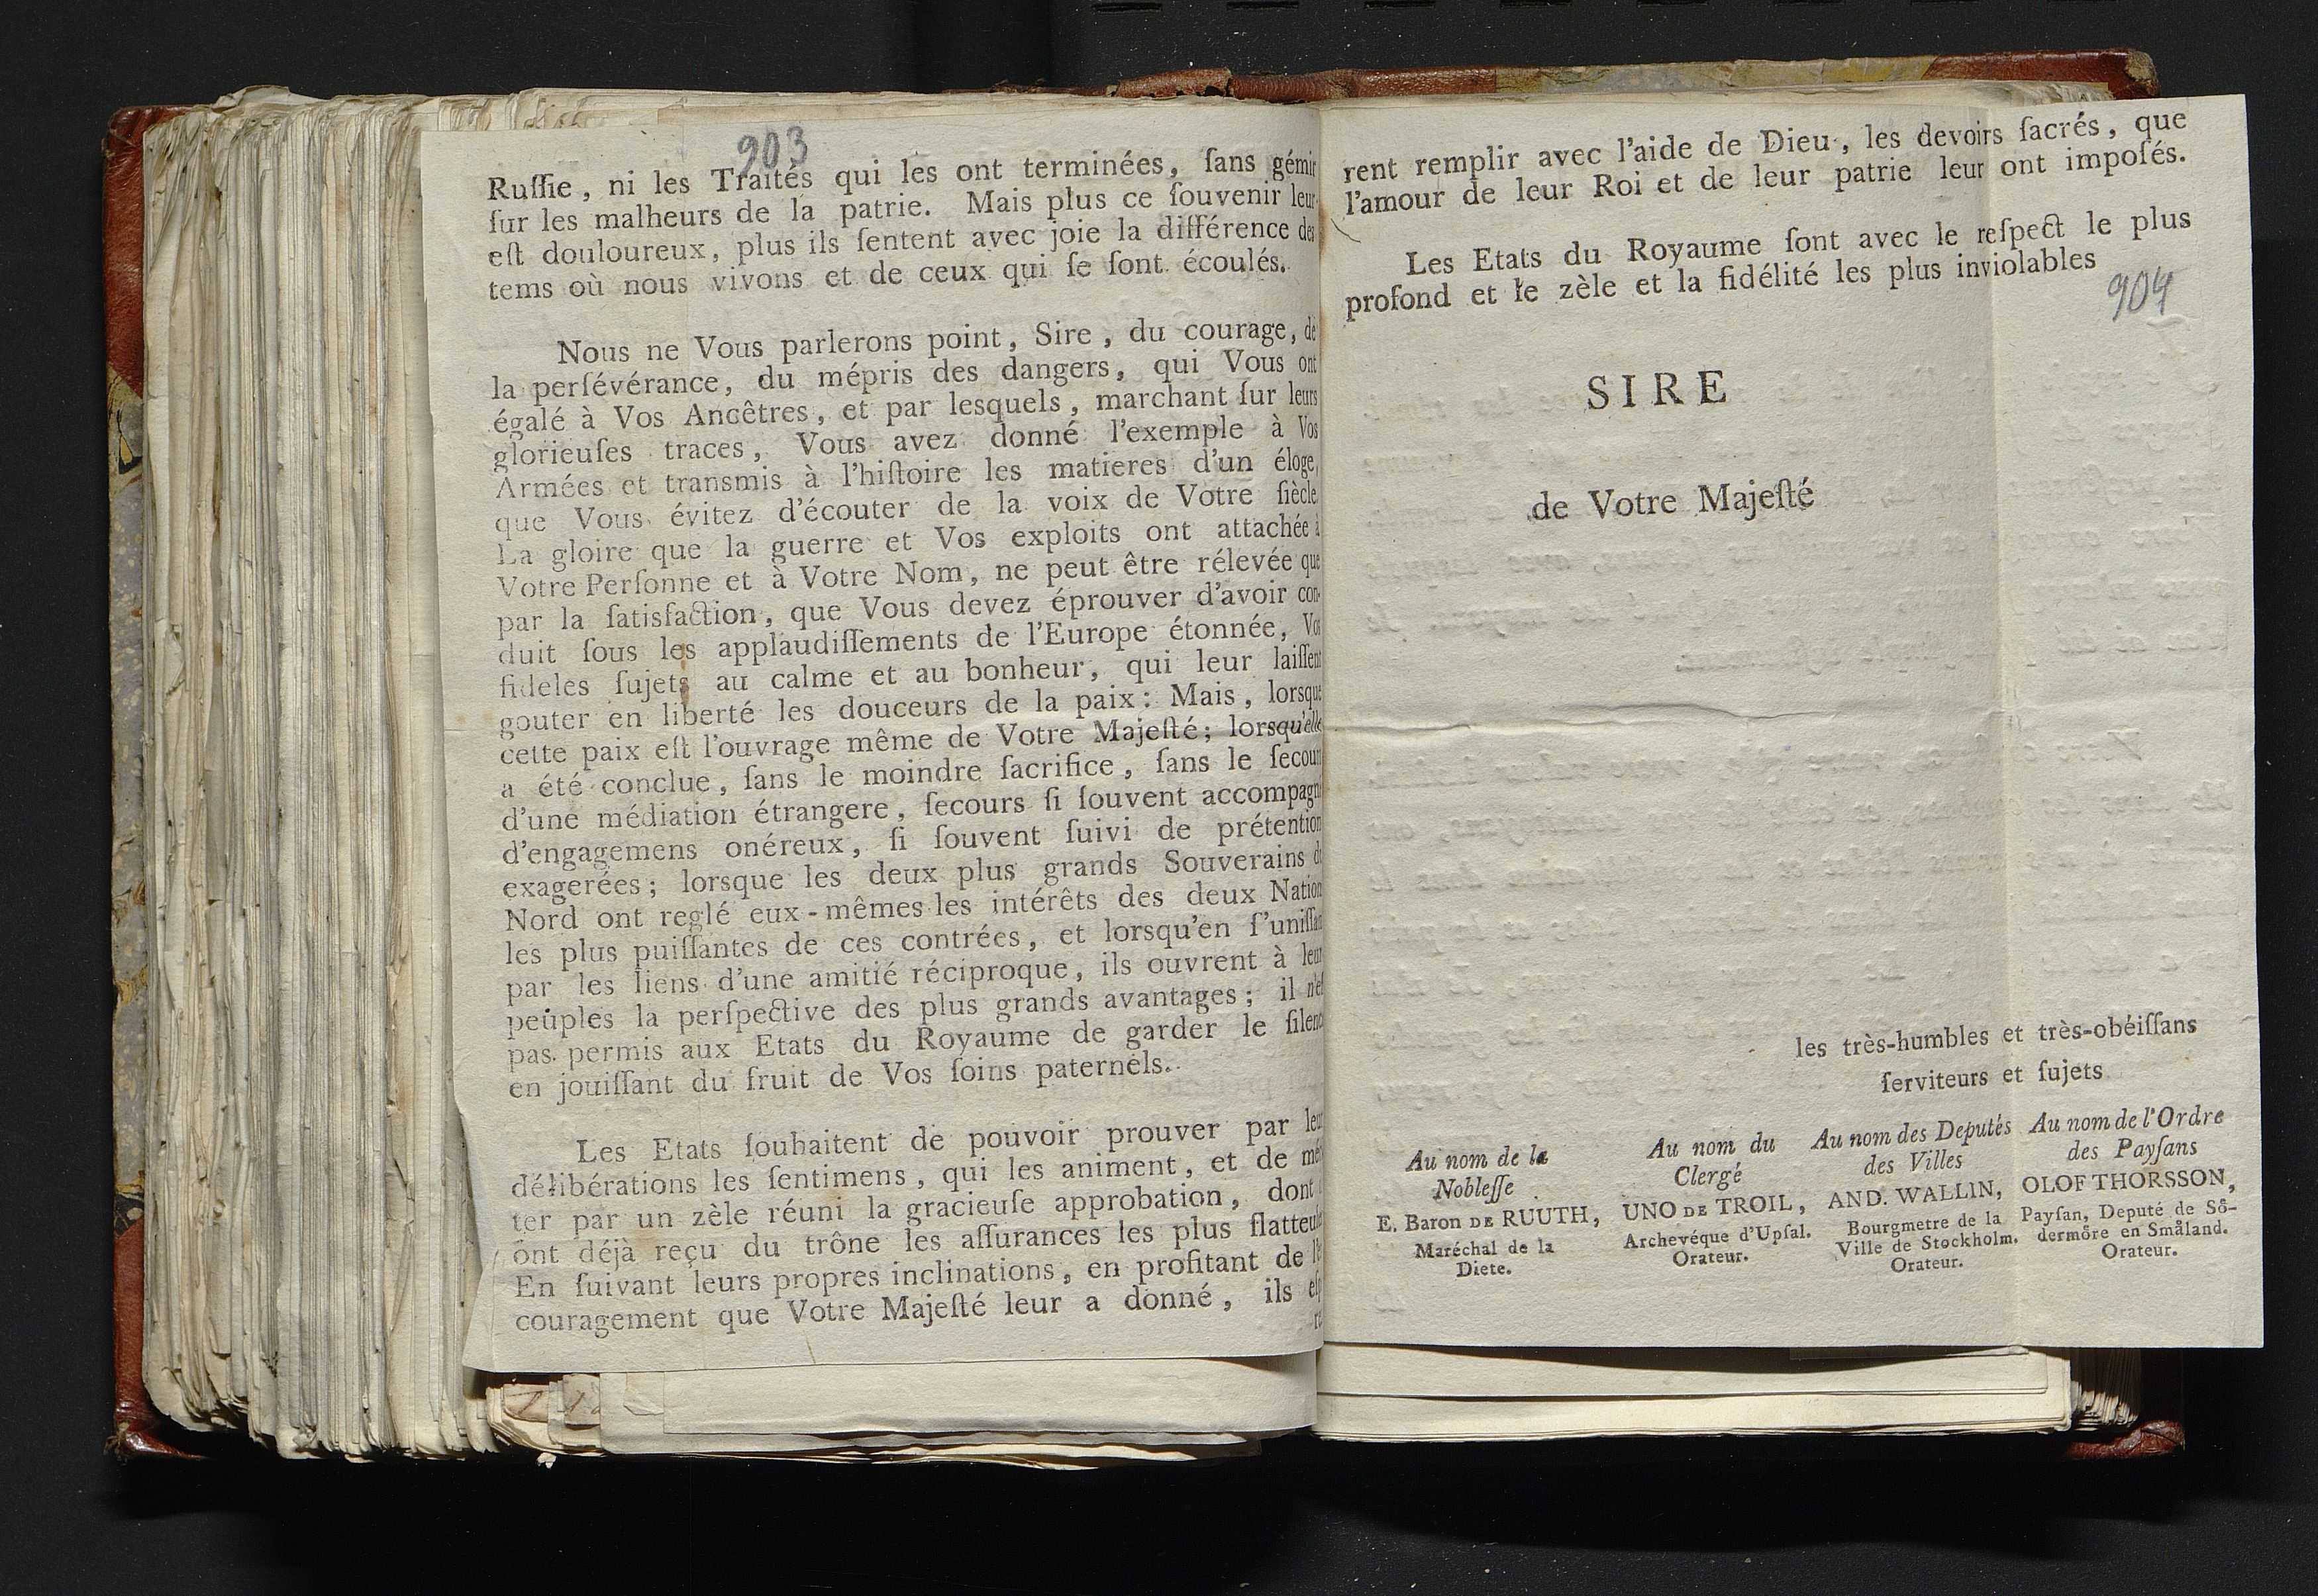 903
Ruſſie, ni les Traités qui les ont terminées, ſans gémir
ſur les malheurs de la patrie. Mais plus ce ſouvenir leur
eſt douloureux, plus ils ſentent avec joie la différence des
tems où nous vivons et de ceux qui ſe ſont écoulés.
Nous ne Vous parlerons point, Sire, du courage, de
la perſévérance, du mépris des dangers, qui Vous ont
égalé à Vos Ancêtres, et par lesquels, marchant ſur leurs
glorieuſes traces, Vous avez donné l'exemple à Vos
Armées et transmis à l'hiſtoire les matieres d'un éloge,
que Vous évitez d'écouter de la voix de Votre ſiècle
La gloire que la guerre et Vos exploits ont attachée à
Votre Perſonne et à Votre Nom, ne peut être rélevée que
par la ſatisfaction, que Vous devez éprouver d'avoir con-
duit ſous les applaudiſſements de l'Europe étonnée, Vos
fideles ſujets au calme et au bonheur, qui leur laiſſent
gouter en liberté les douceurs de la paix: Mais, lorsque
cette paix eſt l'ouvrage même de Votre Majeſté; lorsqu'elle
a été conclue, ſans le moindre ſacrifice, ſans le ſecour
d'une médiation étrangere, ſecours ſi ſouvent accompagn
d'engagemens onéreux, ſi ſouvent ſuivi de prétention
exagerées; lorsque les deux plus grands Souverains d
Nord ont reglé eux-mêmes les intérêts des deux Nation
les plus puiſſantes de ces contrées, et lorsqu'en ſ'uniſſan
par les liens d'une amitié réciproque, ils ouvrent à leur
peuples la perſpective des plus grands avantages; il n'eſ
pas permis aux Etats du Royaume de garder le ſilenc
en jouiſſant du fruit de Vos ſoins paternels.
Les Etats ſouhaitent de pouvoir prouver par leu
délibérations les ſentimens, qui les animent, et de mé
ter par un zèle réuni la gracieuſe approbation, dont
ont déjà reçu du trône les aſſurances les plus flatteuſe
En ſuivant leurs propres inclinations, en profitant de l'e
couragement que Votre Majeſté leur a donné, ils eſp
re
rent remplir avec l'aide de Dieu, les devoirs ſacrés, que
l'amour de leur Roi et de leur patrie leur ont impoſés.
Les Etats du Royaume ſont avec le reſpect le plus
profond et le zèle et la fidélité les plus inviolables
904
SIRE
de Votre Majeſté
les très-humbles et très-obéiſſans
ſerviteurs et ſujets
Au nom de la
Nobleſſe
E. Baron DE RUUTH,
Maréchal de la
Diete.
Au nom du
Clergé
UNO DE TROIL,
Archevéque d'Upſal.
Orateur.
Au nom des Deputés
des Villes
AND. WALLIN,
Bourgmetre de la
Ville de Stockholm.
Orateur.
Au nom de l'Ordre
des Payſans
OLOF THORSSON,
Payſan, Deputé de Sö-
dermöre en Småland.
Orateur.